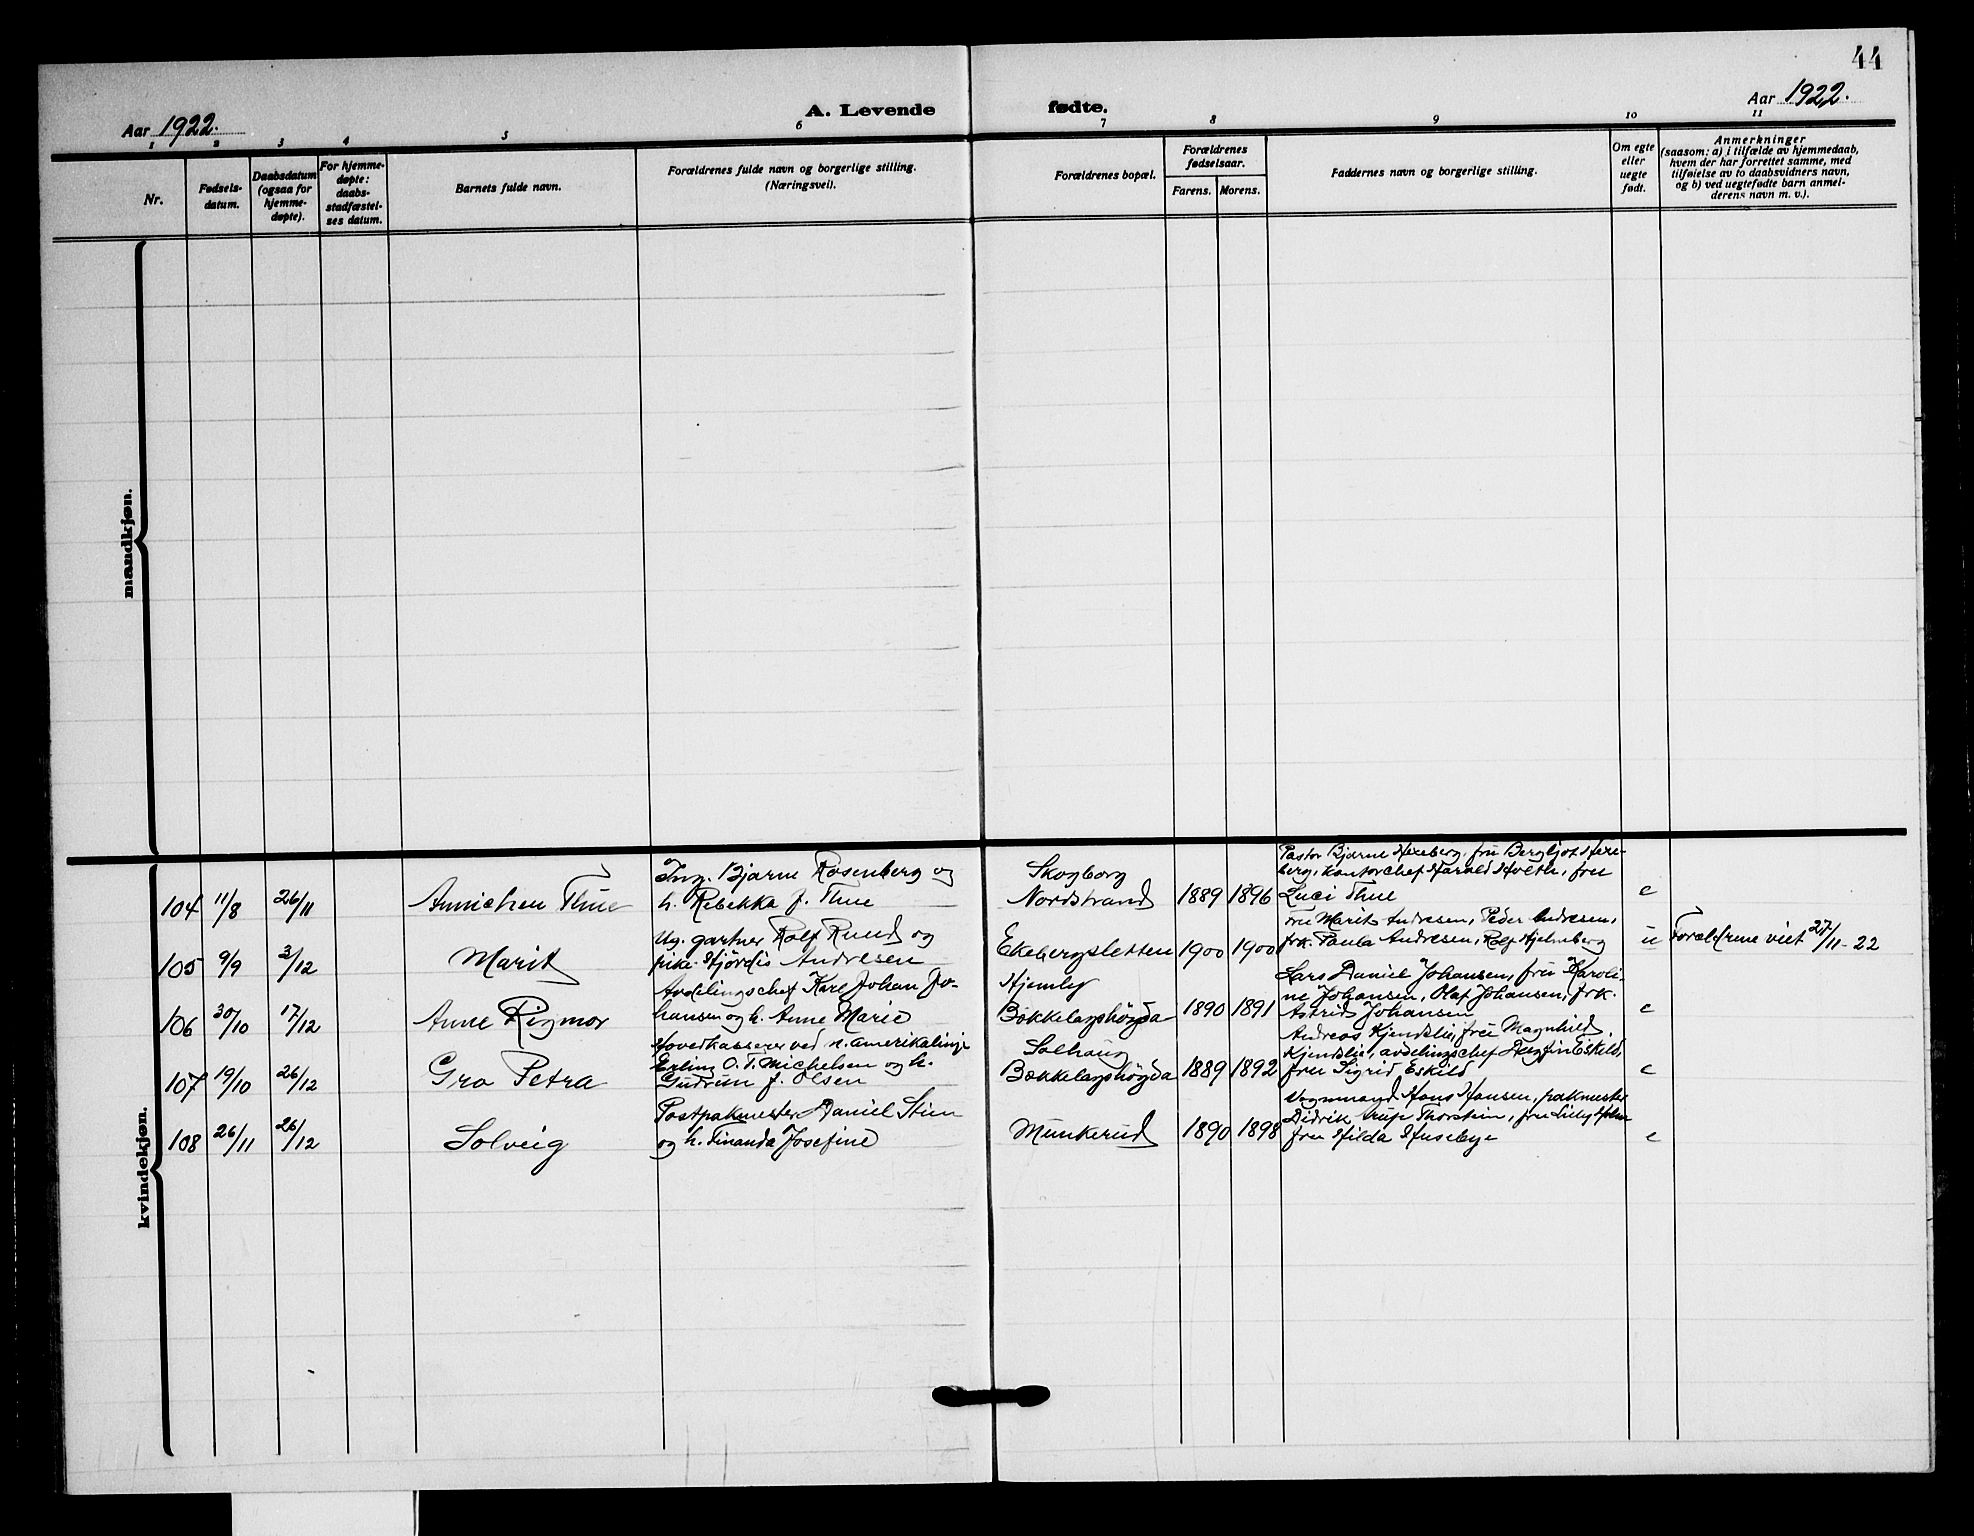 44
Aar 1922.
A. Levende fødte.
Aar 1922.
1 2 3 4 5 6 7 8 9 10 11
Nr.
Fødsels-
datum.
Daabsdatum
(ogsaa for
hjemme-
døpte).
For hjemme-
døpte:
daabs-
stadfæstel-
ses datum.
Barnets fulde navn.
Forældrenes fulde navn og borgerlige stilling.
(Næringsvei).
Forældrenes bopæl.
Forældrenes
fødselsaar.
Farens. Morens.
Faddernes navn og borgerlige stilling.
Om egte
eller
uegte
født.
Anmerkninger
(saasom: a) i tilfælde av hjemmedaab,
hvem der har forrettet samme, med
tilføielse av to daabsvidners navn,
og b) ved uegtefødte barn anmel-
derens navn m. v.).
mandkjøn.
kvindekjøn.
104 11/8 26/11
Annichen Thue
Ing. Bjarne Rosenberg og
h. Rebekka f. Thue
Skogborg
Nordstrand
1889 1896
Pastor Bjarne Hexeberg, fru Bergljot Hexe-
berg, kontorchef Harald Holth, fru
Luci Thue
e
105 9/9 3/12
Marit
Ug. gartner Rolf Ruud og
pike Hjørdis Andresen
Ekebergsletten
1900 1900
Fru Marit Andresen, Peder Andresen,
frk. Paula Andresen, Rolf Hjelmberg
u
Forældrene viet 27/11-22
106 30/10 17/12
Anne Rigmor
Avdelingschef Karl Johan Jo-
hansen og h. Anne Marie
Hjemly
Bækkelagshøgda
1890 1891
Lars Daniel Johansen, fru Karoli-
ne Johansen, Olaf Johansen, frk.
Astrid Johansen
e
107 19/10 26/12
Gro Petra
Hovedkasserer ved n. amerikalinje
Erling O. T. Michelsen og h.
Gudrun f. Olsen
Solhaug
Bækkelagshøgda
1889 1892
Andreas Kjendslie, fru Magnhild
Kjendslie, avdelingschef Dagfin Eskild,
fru Sigrid Eskild
e
108 26/11 26/12
Solveig
Postpakmester Daniel Stien
og h. Finanda Josefine
Munkerud
1890 1898
Vognmand Hans Hansen, pakmester
Didrik Thorstein, fru Lilly
fru Hilda Husebye
e